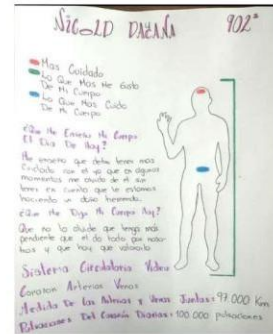 NICOLD DAYANA 902ª
Mas Cuidado
Lo Que Mas Me Gusto
De Mi Cuerpo
Lo Que Mas Cuido
De Mi Cuerpo
¿Que Me Enseño Mi Cuerpo
El Dia De Hoy?
Me enseño que debo tener mas
Cuidado con el ya que en algunos
momentos me olvido de el sin
tener en cuenta que le estamos
haciendo un daño tremendo.
¿Que Me Dijo Mi Cuerpo Hoy?
Que no lo olvide que tenga mas
pendiente que el da todo por noso-
tros y que hay que valorarlo
Sistema Circulatorio Video
Corazon Arterias Venas
Medida De Las Arterias y Venas Juntas: 97.000 Km
Pulsaciones Del Corazon Diarias: 100.000 pulsaciones